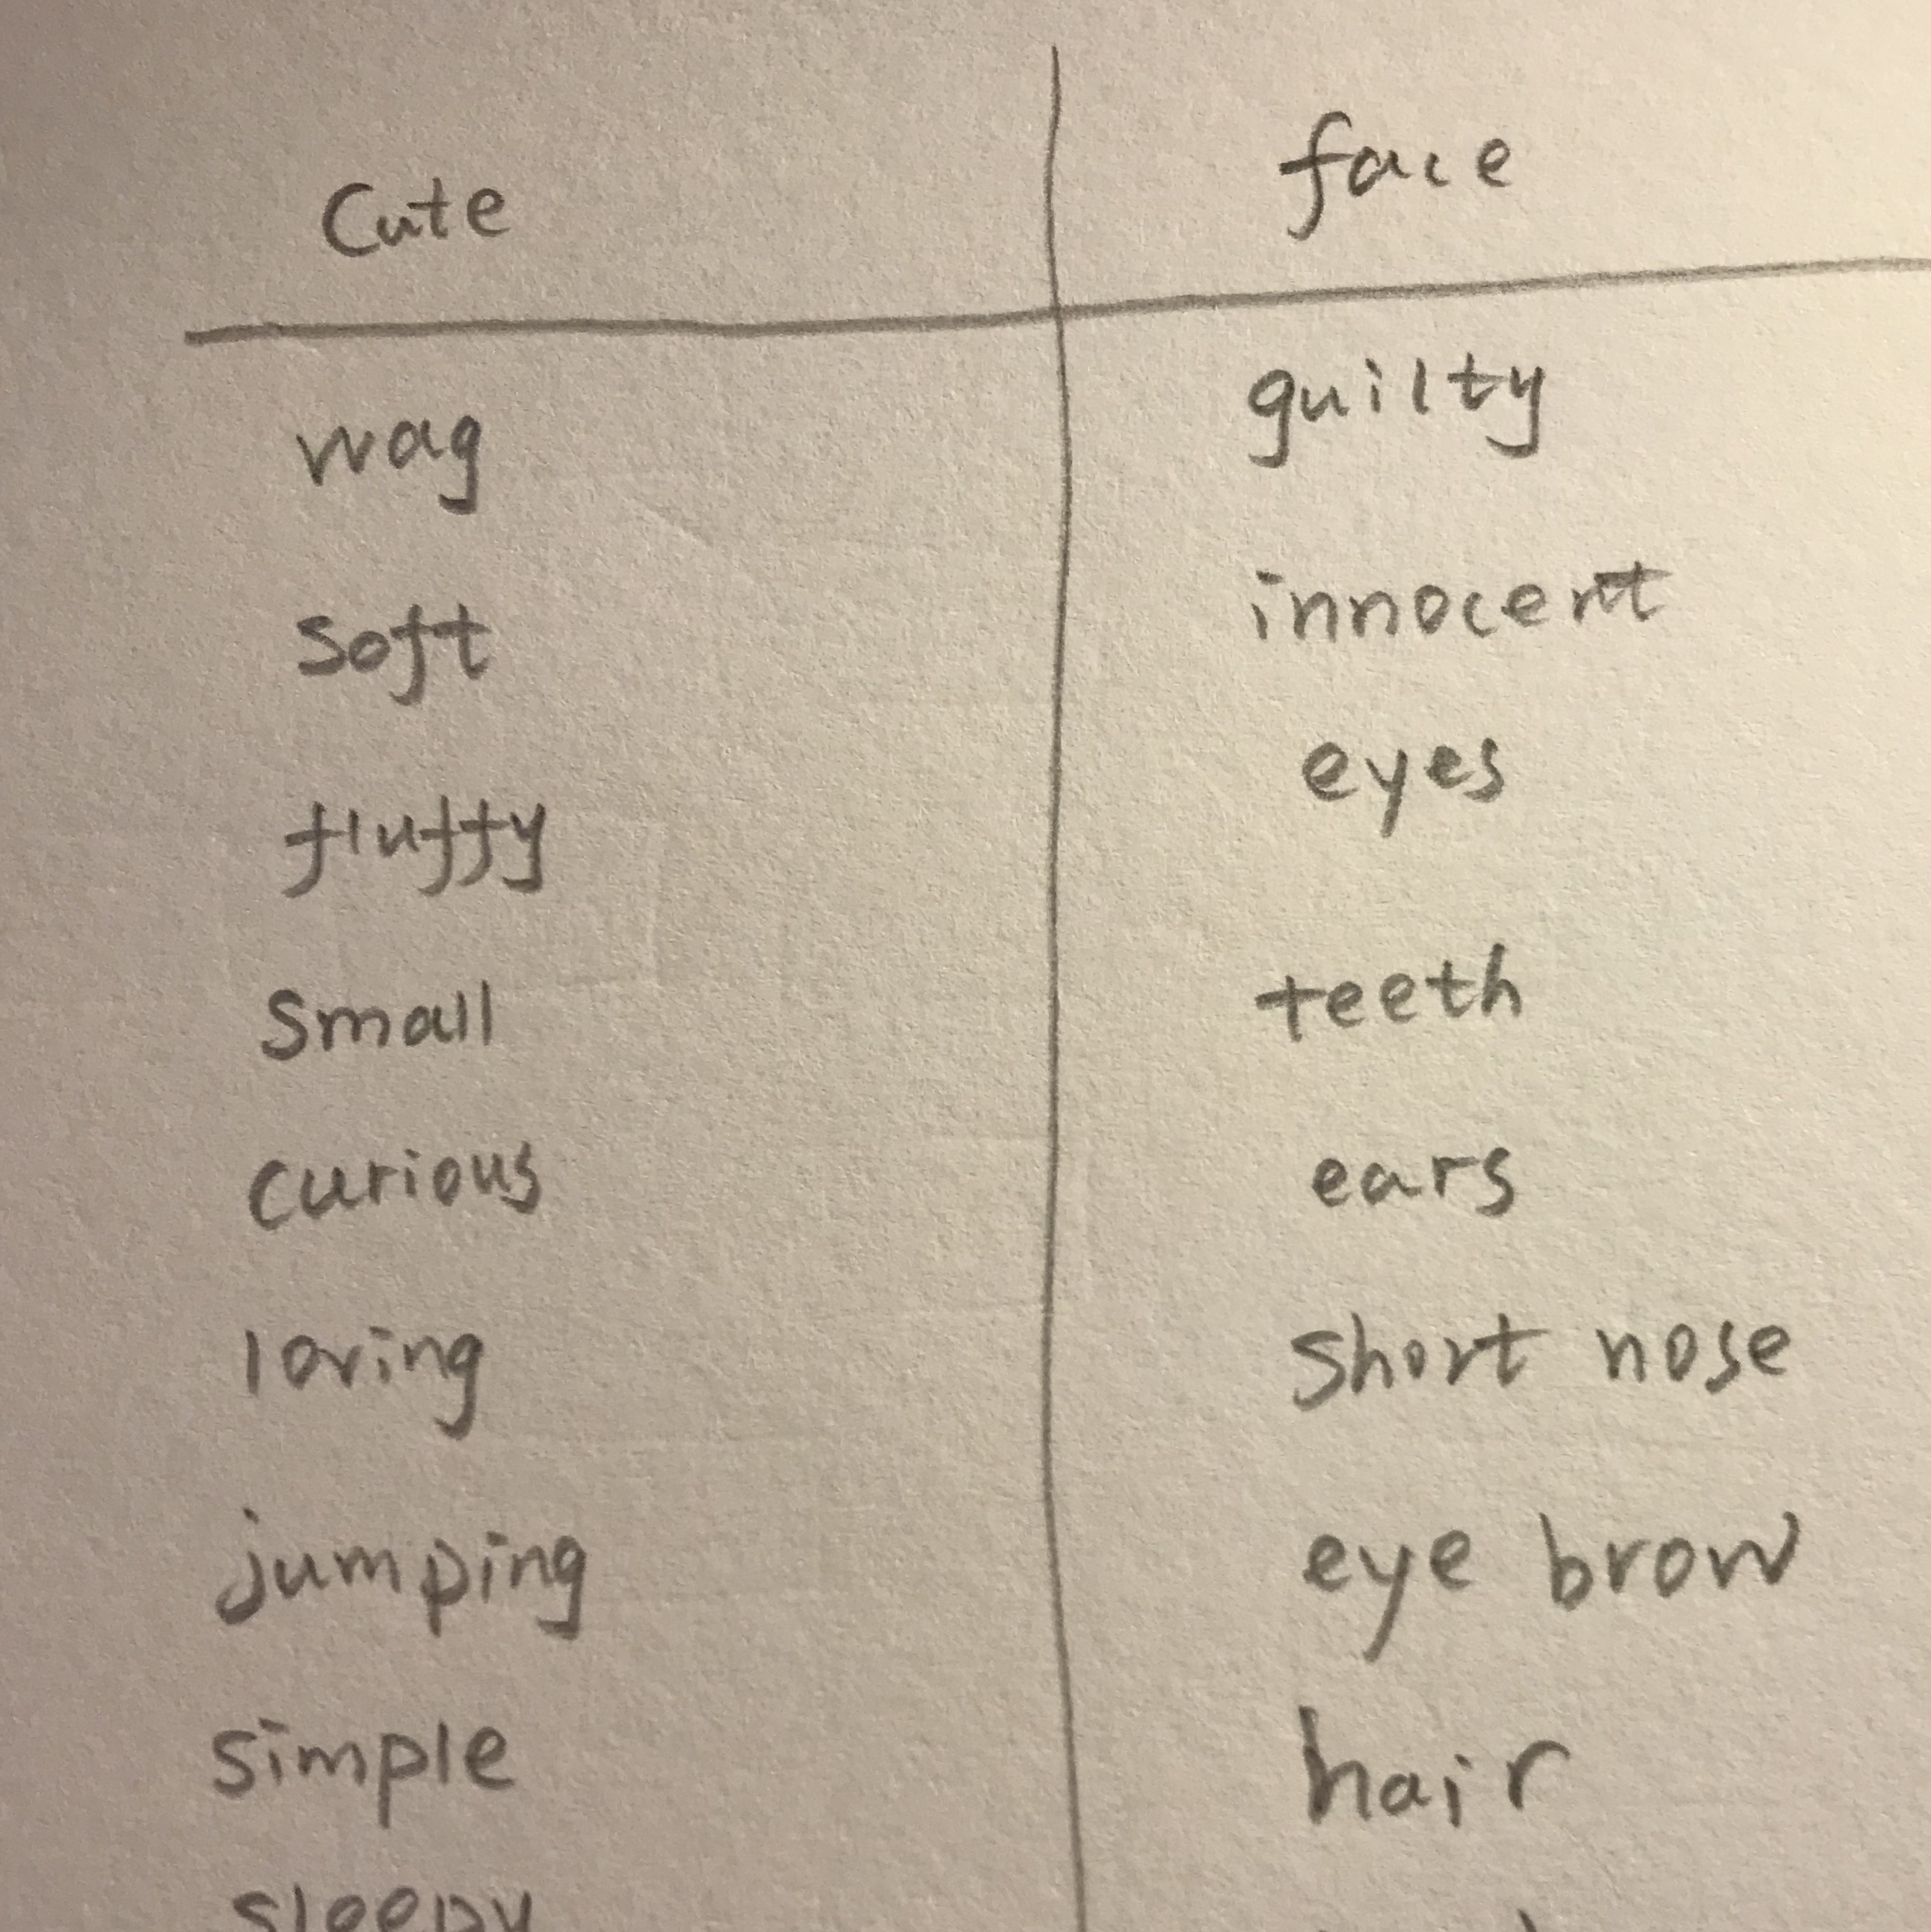 Cute face
wag guilty
soft innocent
fluffy eyes
small teeth
curious ears
loving short nose
jumping eye brow
simple hair
sleepy